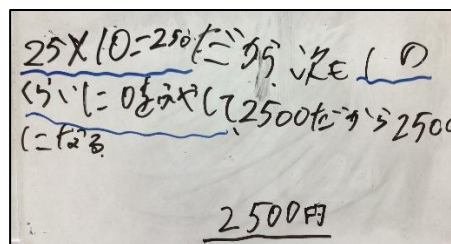 25×10=250だから次も1の
くらいに0をふやして、2500だから2500
になる
2500円